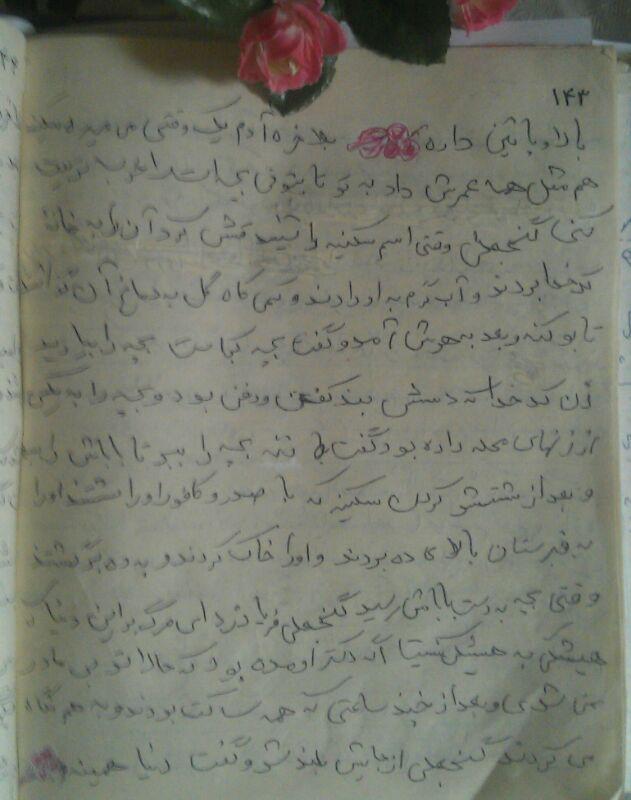 ۱۴۳
بالا و پائین داره بلاخره آدم یک وقتی می میره سکینه
هم مثل همه عمرش داد به تو تا بتونی بچه ات را خوب تربیت
کنی گنجعلی وقتی اسم سکینه را شنید غش کرد آن را به خانه
کدخدا بردند و آب گرم به او دادند و کمی کاه گل به دماغ آن
تا بو کنه و بعد به هوش آمد و گفت بچه کجاست بچه را بیارید
زن کدخدا که دستش بند کفن و دفن بود و بچه را به یکی
از زنهای محله داده بود گفت ننه بچه را ببر تا باباش را
و بعد از شتشو کردن سکینه که با صدر و کافور او را شستند او را
به قبرستان بالای ده بردند و او را خاک کردند و به ده برگشتند
وقتی بچه به دست باباش رسید گنجعلی فریاد زد ای مرگ بر این دنیا که
هیشکی به هیشکی نیست آقا دکتر اومده بود که حالا تو بی مادر
نمی شدی و بعد از چند ساعتی که همه ساکت بودند و به هم نگاه
می کردند گنجعلی از جایش بلند شد و گفت دنیا همینه